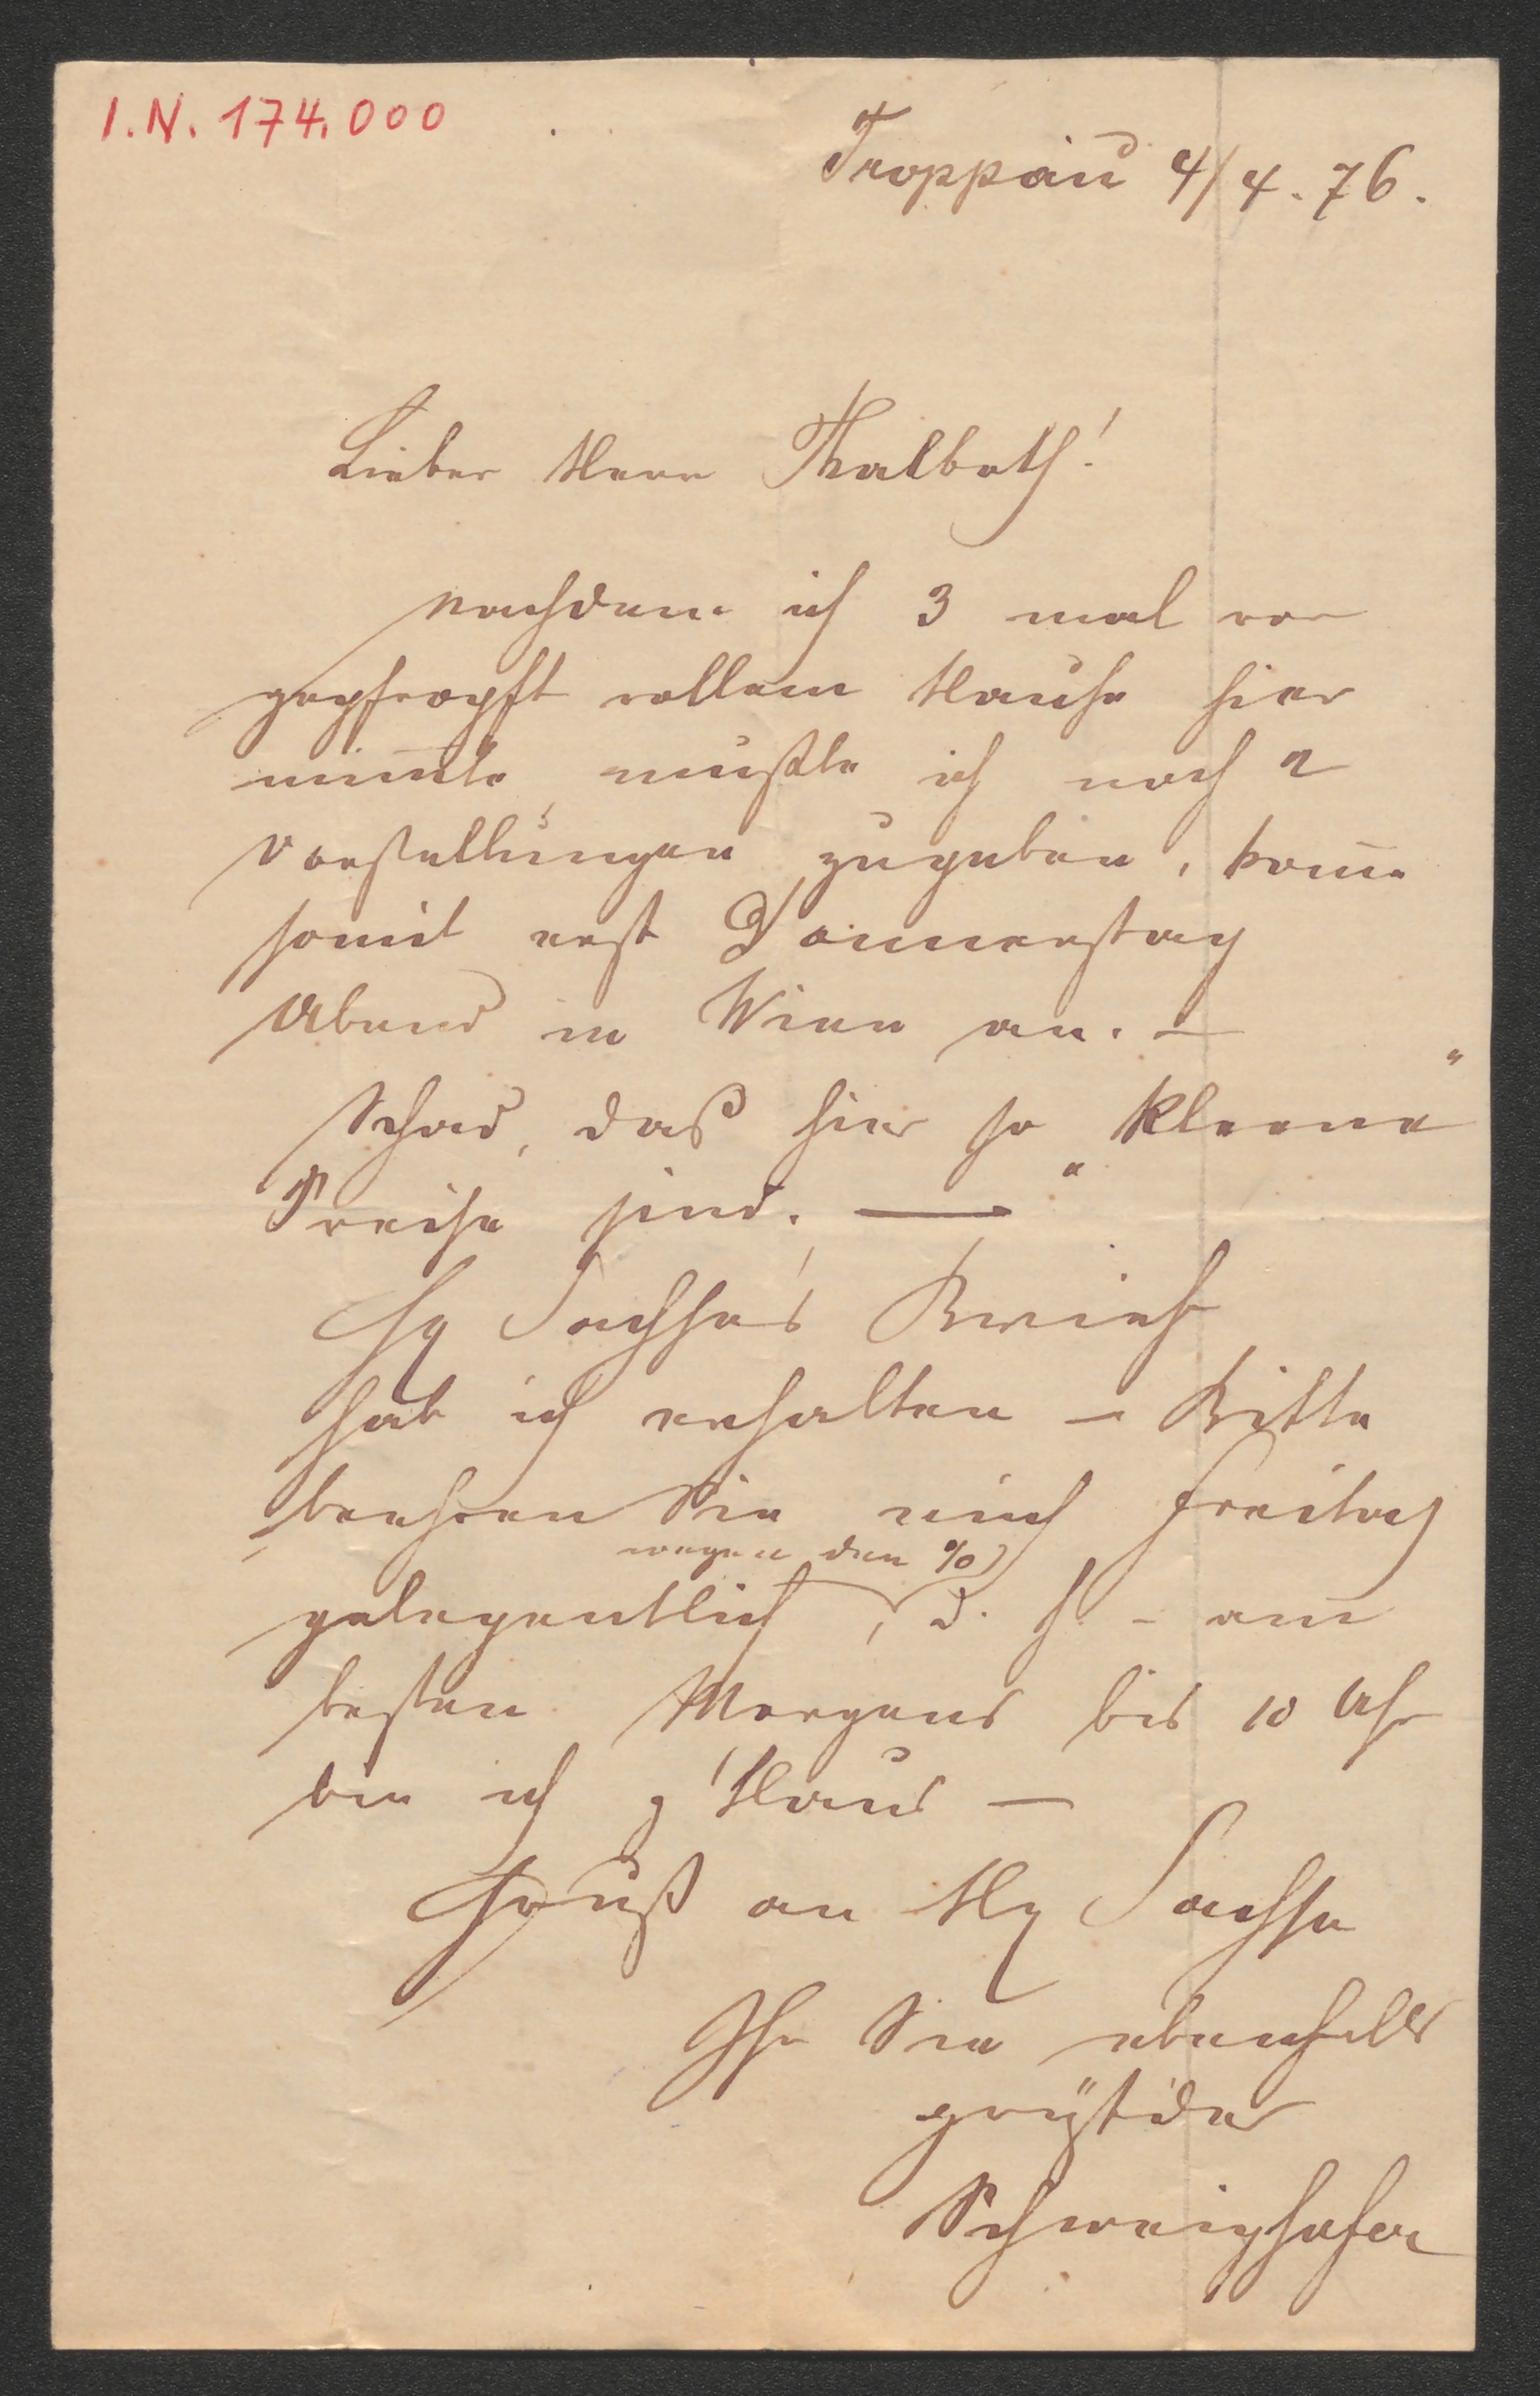 I.N. 174.000
Troppau 4/4. 76.
Lieber Herr Thalboth!
nachdem ich 3 mal vor
gepfropft vollem Hause hier
mimte, mußte ich noch 2
Vorstellungen zugeben, kom̄e
somit erst Donnerstag
Abend in Wien an. –
Schad, daß hier so "kleene"
Preise sind. —
H Sachse's Brief
hab ich erhalten – Bitte
beehren Sie mich Freitag
wegen den %
gelegentlich, d. h. – am
besten Morgens bis 10 Uhr
bin ich z'Haus —
Gruß an H Sachse
Ihr Sie ebenfalls
grüßender
Schweighofer